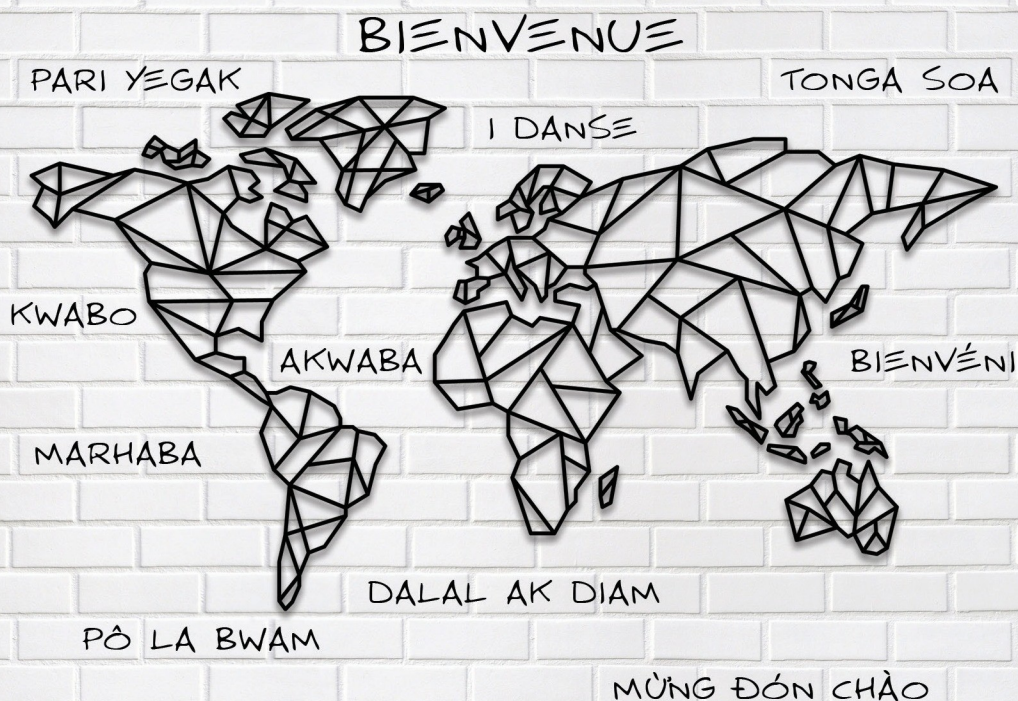 BIENVENUE
PARI YEGAK
TONGA SOA
I DANSE
KWABO
AKWABA
BIENVÉNI
MARHABA
DALAL AK DIAM
PÔ LA BWAM
MỪNG ĐÓN CHÀO